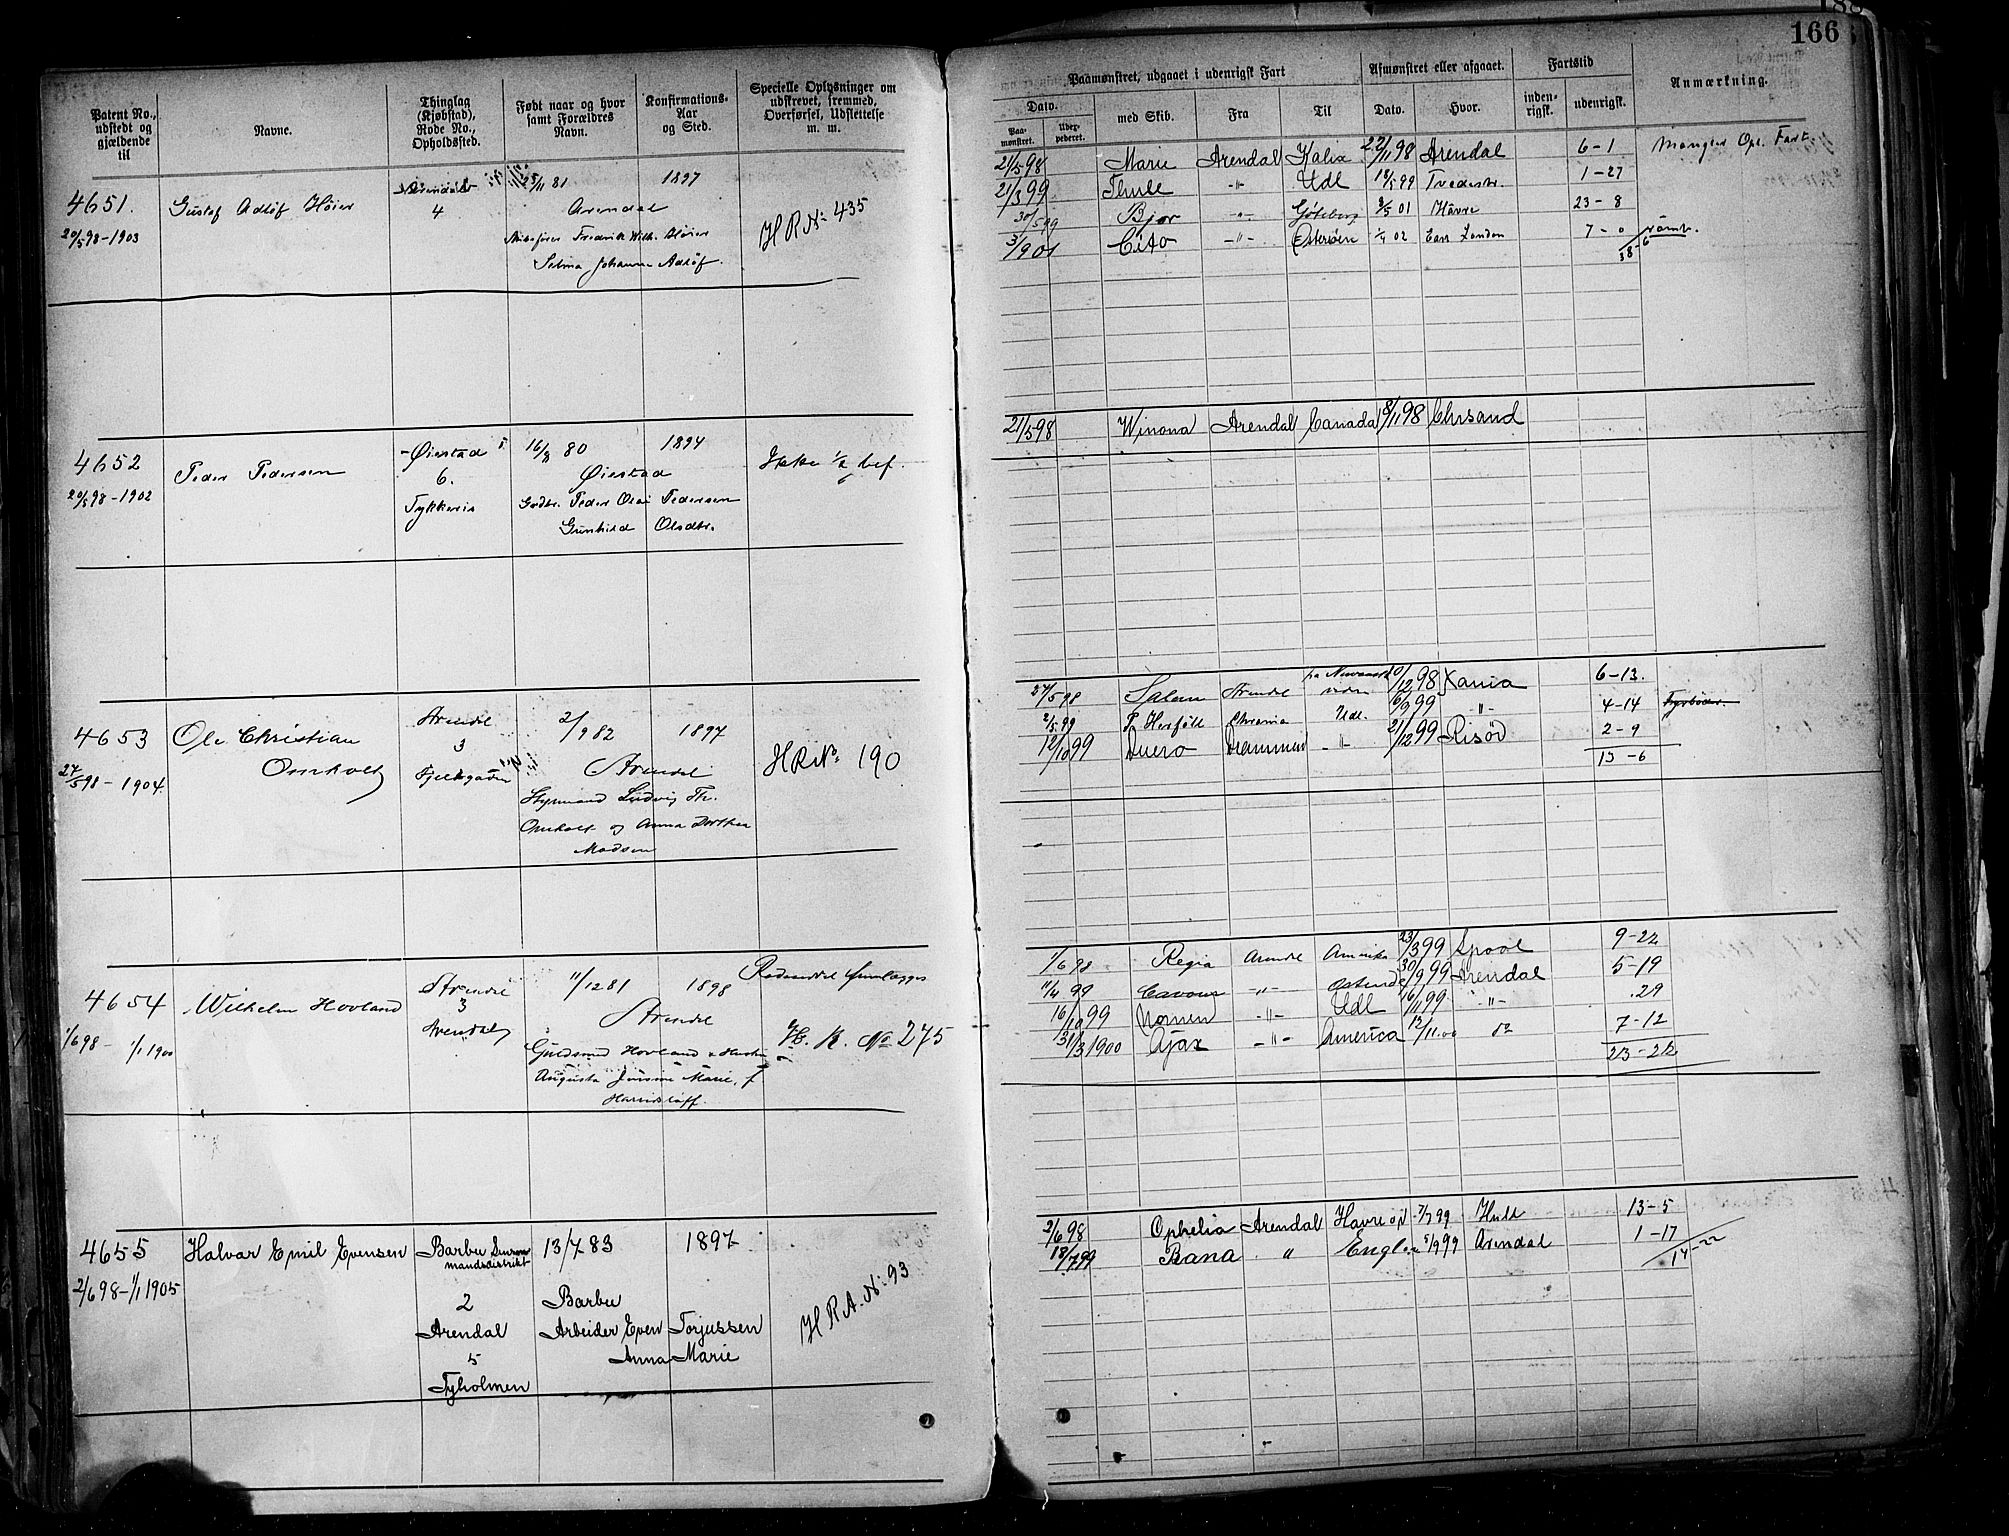 188
166
Patent No., udstedt og gjældende til
Navne.
Thinglag (Kjøbstad), Rode No., Opholdssted.
Født naar og hvor samt Forældres Navn.
Konfirmations-Aar og Sted.
Specielle Oplysninger om udskrevet, fremmed, Overførsel, Udslettelse m. m.
Paamønstret, udgaaet i udenrigsk Fart
Dato.
Paamønstret.
Udexpederet.
med Skib.
Fra
Til
Afmønstret eller afgaaet.
Dato.
Hvor.
Fartstid
indenrigsk.
udenrigsk.
Anmærkning.
4651.
20/5 98-1903
Gustaf Adlöf Höier
4
25/11 81
1897
Arendal
Frederik Wilh. Höier
Selma Johanne Adlöf.
H R N: 435
21/5 98 Marie Arendal Kalix 22/11 98 Arendal 6-1 Mangler Opl. Fart
21/3 99 Thule -"- Udl 18/5 99 Tvedestr. 1-27
30/5 99 Bjor -"- Göteborg 3/5 01 Havre 23-8
3/9 01 Cito -"- 1/4 02 East London 7-0
38-6
4652
20/5 98-1902
Peder Pedersen
Øiestad
6.
16/3 80
1894
Øiestad
Gdbr. Peder Olai Pedersen
Gunhild Olsdtr.
Ikke 1/2 bef.
21/5 98 Winona Arendal Canada 8/11 98 Chrsand
4653
27/5 98-1904.
Ole Christian
Omholt
Arendal
3
2/9 82
1897
Arendal
Styrmand Ludvig Th.
Omholt og Anna Dorthea
Madsen
HR No: 190
27/5 98 Salem Arendal 10/12 98 Xania 6-13.
2/5 99 Chrania Udl. 6/9 99 -"- 4-14 Fyrbøder.
12/10 99 Drammen -"- 21/12 99 Risør 2-9
13-6
4654
1/6 98 - 1/1 1900
Wilhelm Hovland
Arendal
3
Arendal
11/12 81
1898
Arendal
Guldsmed Hovland & Hustru
Augusta Marie, f
H. R. No 275
1/6 98 Regia Arendal Amerika 23/3 99 Lpool 9-22
11/4 99 Cavour -"- Ostende 30/9 99 Arendal 5-19
16/10 99 Nornen -"- Udl 16/11 99 -"- .29
31/3 1900 Ajax -"- America 12/11.00 do 7-12
23-22
4655
2/6 98-1/1 1905
Halvar Emil Evensen
Barbu Lensmandsdistrikt
2
Arendal
5
Tyholmen
13/7 83
1897
Barbu
Arbeider Even Torjussen
Anna Marie
H R A. N: 93
2/6 98 Ophelia Arendal Havre 7/7 99 Hull 13-5
18/7 99 Rana " Engl. 5/9 99 Arendal 1-17
14-22